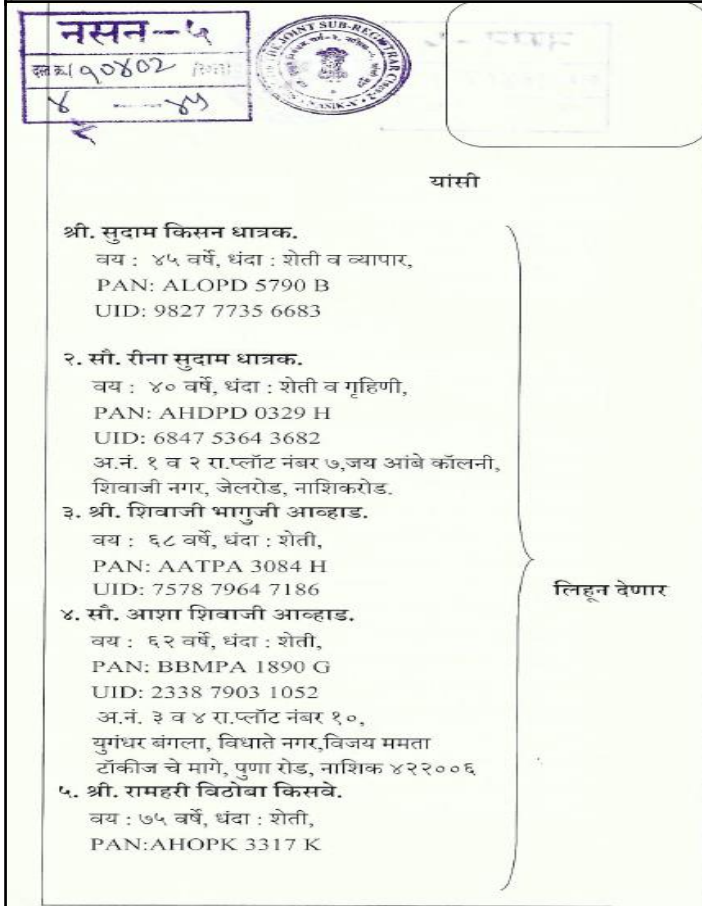 नसन-५
दस्त क्र./१०४०२
४ ---- ४५
यांसी
श्री. सुदाम किसन धात्रक.
वय : ४५ वर्षे, धंदा : शेती व व्यापार,
PAN: ALOPD 5790 B
UID: 9827 7735 6683
२. सौ. रीना सुदाम धात्रक.
वय : ४० वर्षे, धंदा : शेती व गृहिणी,
PAN: AHDPD 0329 H
UID: 6847 5364 3682
अ.नं. १ व २ रा.प्लॉट नंबर ७,जय आंबे कॉलनी,
शिवाजी नगर, जेलरोड, नाशिकरोड.
३. श्री. शिवाजी भागुजी आव्हाड.
वय : ६८ वर्षे, धंदा : शेती,
PAN: AATPA 3084 H
UID: 7578 7964 7186
लिहून देणार
४. सौ. आशा शिवाजी आव्हाड.
वय : ६२ वर्षे, धंदा : शेती,
PAN: BBMPA 1890 G
UID: 2338 7903 1052
अ.नं. ३ व ४ रा.प्लॉट नंबर १०,
युगंधर बंगला, विधाते नगर,विजय ममता
टॉकीज चे मागे, पुणा रोड, नाशिक ४२२००६
५. श्री. रामहरी विठोबा किसवे.
वय : ७५ वर्षे, धंदा : शेती,
PAN:AHOPK 3317 K